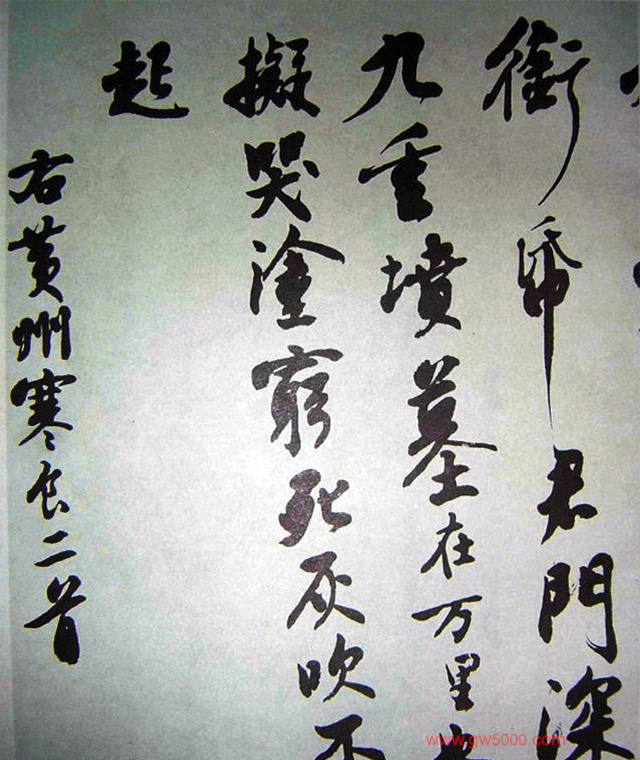 銜帋君門深
九重墳墓在万里也
擬哭塗窮死灰吹不
起
右黄州寒食二首
www.gw5000.com